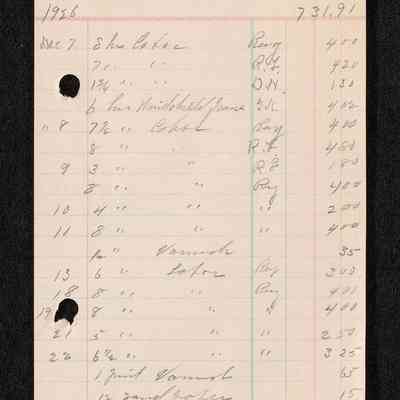 1926 731.91
Dec 7 8 hrs Labor Ray 400
7 " " R.F. 420
" " D.H. 130
6 hrs 402
" 8 7½ " Labor Ray 400
8 " R.F. 480
9 3 " " R.F. 180
8 " " Ray 400
10 4 " " " 200
11 8 " " " 400
" Varnish 35
13 6 " Labor Ray 300
18 8 " " Ray 400
19 8 " " " 400
21 5 " " " 250
22 6½ " " " 325
1 pint Varnish 65
sand paper 15